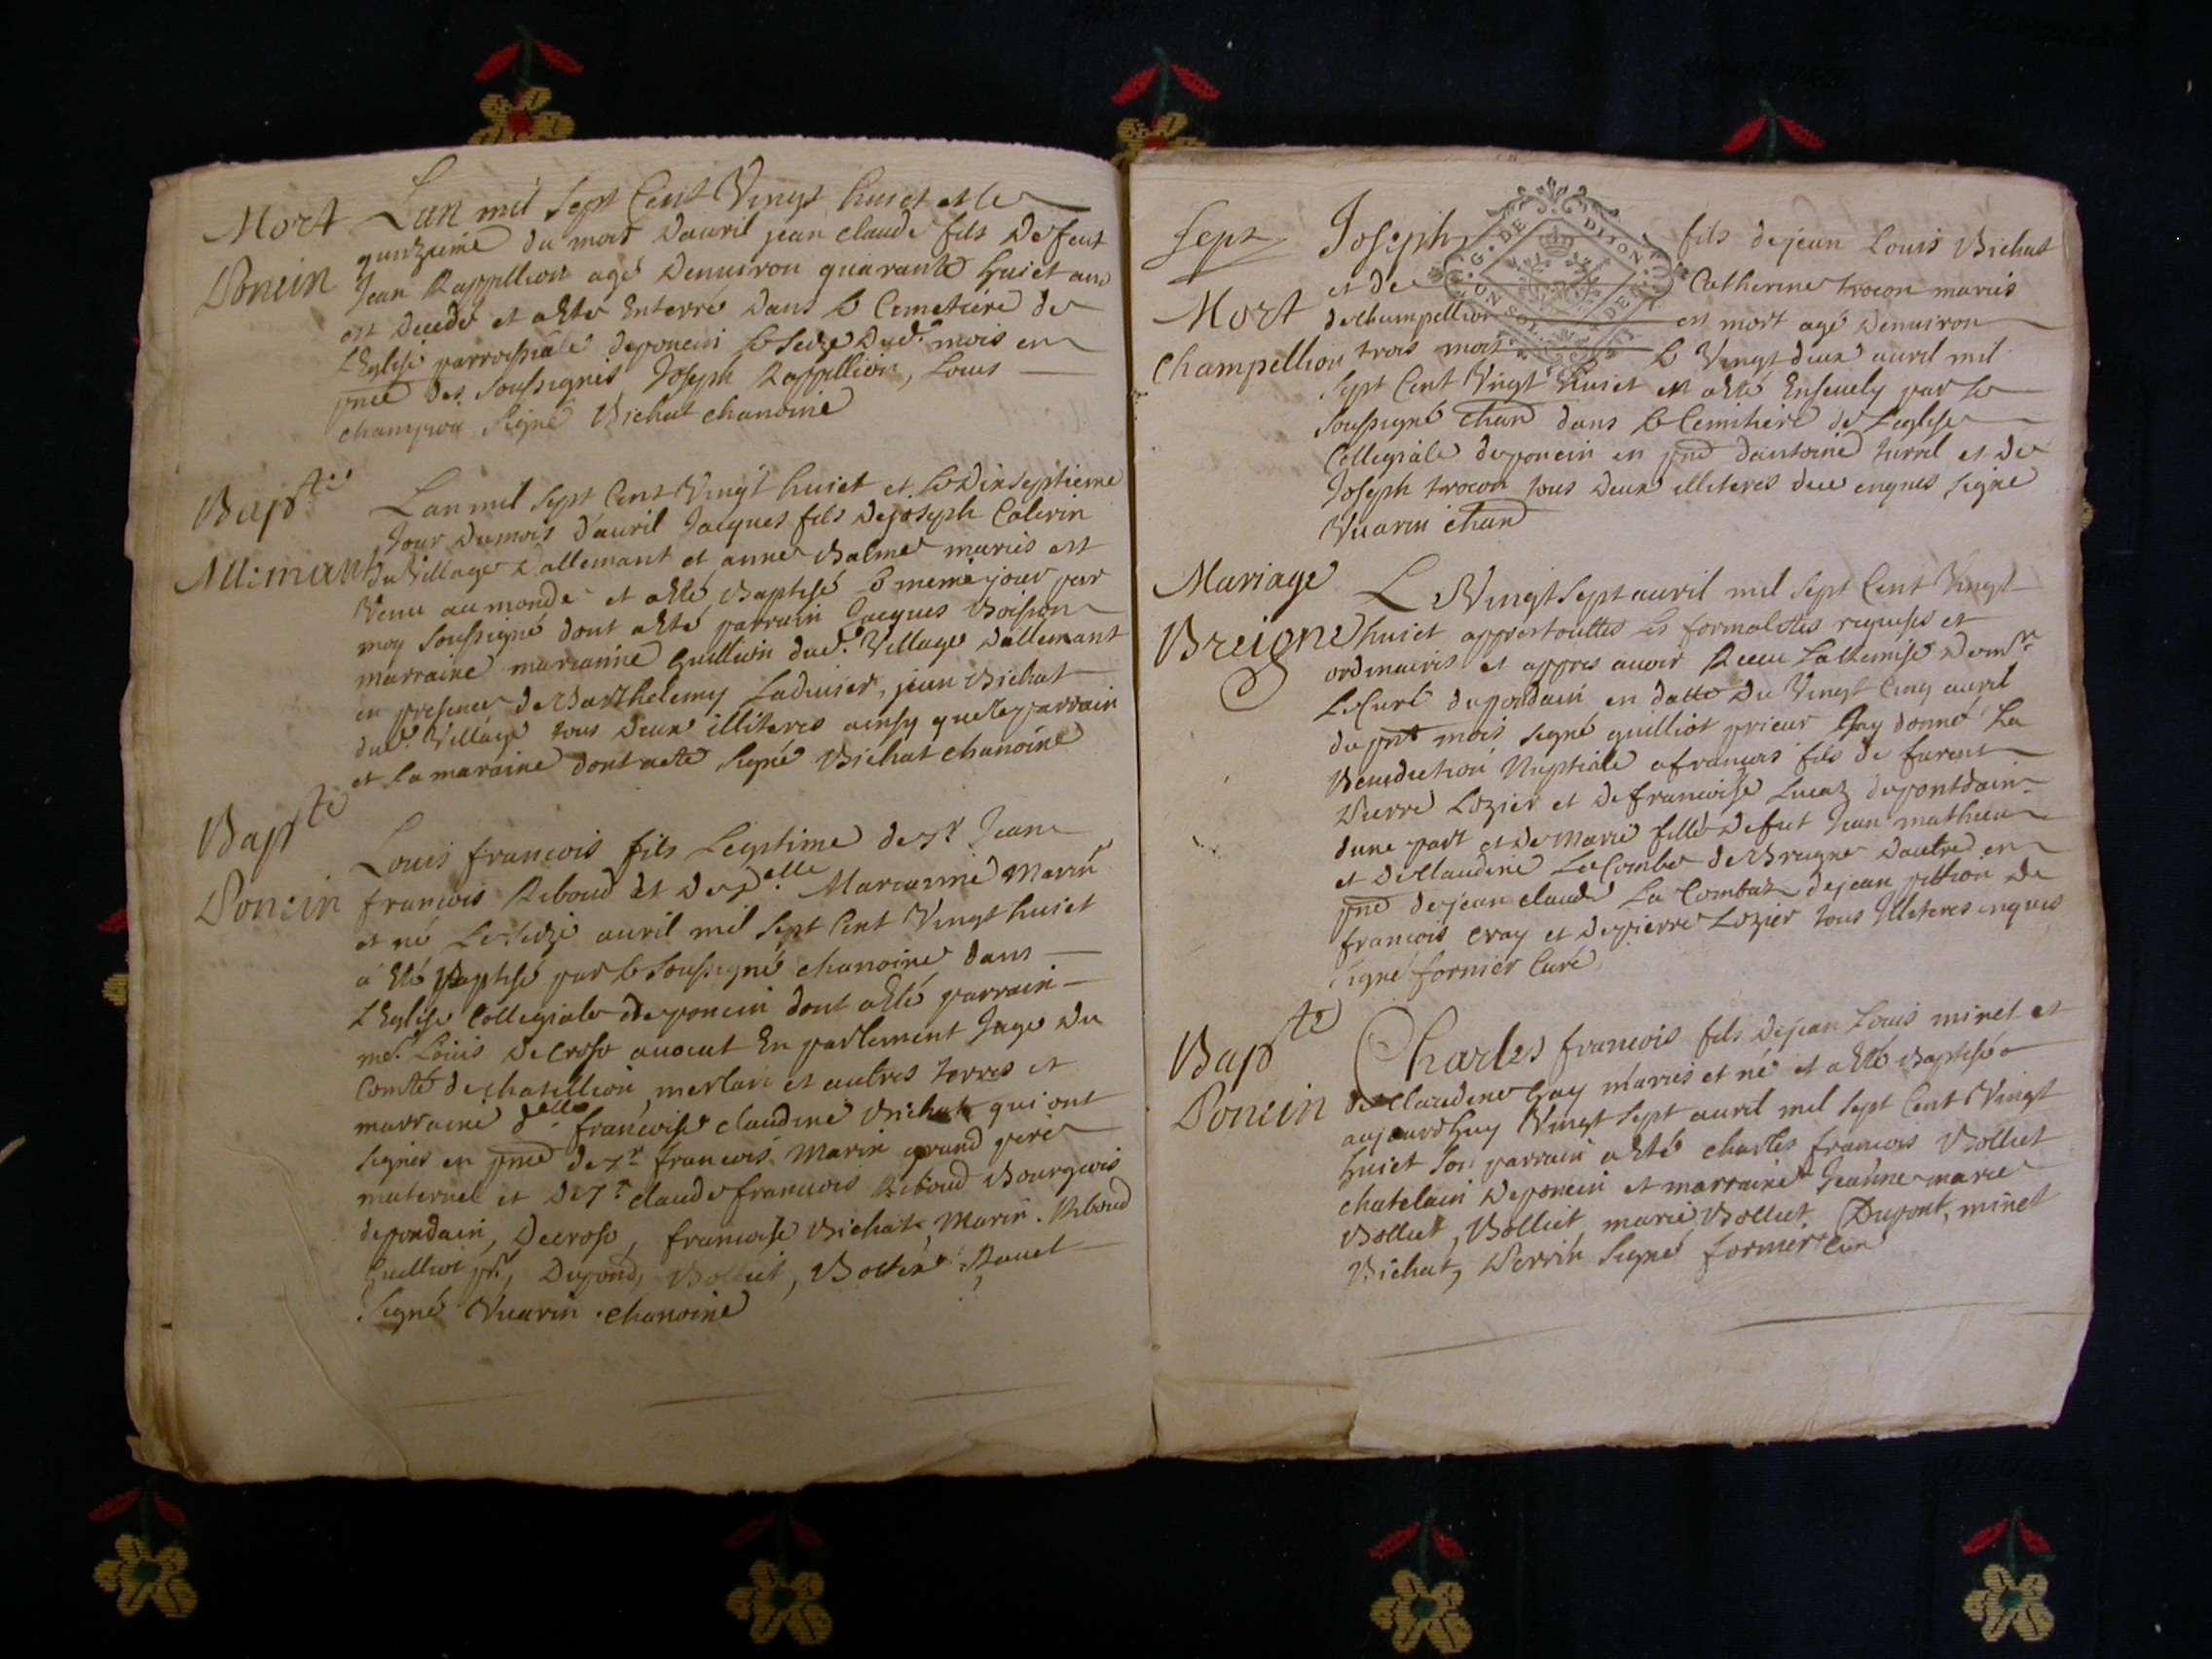 Mort
Poncin
Lan mil Sept Cent Vingt huict et le
quinzieme du mois Dauril jean claude fils Defeut
Jean Rappillion agé Denuiron quarante huict ans
est Decedé et aesté Enterré Dans le Cemetiere de
LEglise parrossiale deponcin le Seize Dud. mois en
pnce des soussignés Joseph Rappillion, Louis
champion Signé Bichat chanoine
Bapte
Allemant
Lan mil Sept Cent Vingt huict et le Dix septieme
Jour Dumois d'auril Jacques fils Dejoseph Calerin
du Village Lallemant et anne Balme mariés est
Venu au monde et aesté Baptisé le meme jour par
moy soussigné dont aesté parrain Jacques Boisson
marraine marianne Guillion dud. Village Dallemant
en presence de Barthelemy Laducier, jean Bichat
dud. Village tous deux illiteres ainsy queleparrain
et la maraine dont acte Signé Bichat chanoine
Bapte
Poncin
Louis francois fils Legitime de Sr. Jean
francois Riboud et De Delle Marianne Marin
et né Le seize auril mil Sept Cent Vingt huict
a Eté Baptisé par le Soussigné chanoine dans
LEglise Collegiale deponcin dont aesté parrain
me. Louis Decroso auocat En parlement Juge Du
Comté de chatillion, merlan et autres terres et
marraine delle francoise claudine Bichat qui ont
signés en pnce de Sr. francois Marin grand pere
maternel et De Sr. claude francois Riboud Bourgeois
depondain, Decroso, francoise Bichat, Marin. Riboud
Guilliot pr., Dupond, Bolliet, Rauet
Signé Vuarin chanoine
Sept
Mort
Champillion
Joseph fils dejean Louis Bichat
et de Catherine trocon mariés
dechampillion est mort agé Denuiron
trois mois le Vingt deux auril mil
Sept Cent Vingt huict et aesté Enseuely par le
Soussigné chan dans le Cemitiere de Leglise
Collegiale deponcin en pnce dantoine turrel et de
Joseph trocon tous deux illiteres de ce enquis Signé
Vuarin chan
G.G. DE DIJON
Mariage
Breigne
Le Vingt Sept auril mil Sept Cent Vingt
huict appres touttes les formalités requises et
ordinaires et appres auoir Receu La Remise de mr.
Le Curé depondain en datte Du Vingt Cinq auril
du pnt mois signé guilliot prieur Jay donné La
Benediction Nuptiale afrancois fils de furent
Pierre Lozier et De francoise Lucaz depontdain
dune part et De marie fille Defut Jean mathieu
et De Claudine La Combe de Breigne Dautre en
pnce dejean claude La Combaz dejean pittion de
francois cray et Depierre Lozier tous Illiteres enquis
signé fornier Curé
Bapte
Poncin
Charles francois fils Dejean Louis minet et
de Claudine Gay mariés et né et aesté Baptisé
aujourdhuy Vingt Sept auril mil Sept Cent Vingt
huict Son parrain aesté charles francois Bolliet
chatelain Deponcin et marraine Jeanne marie
Bolliet, Bolliet, marie Bolliet. Dupont, minet
Bichat, Perrin Signé fornier Curé